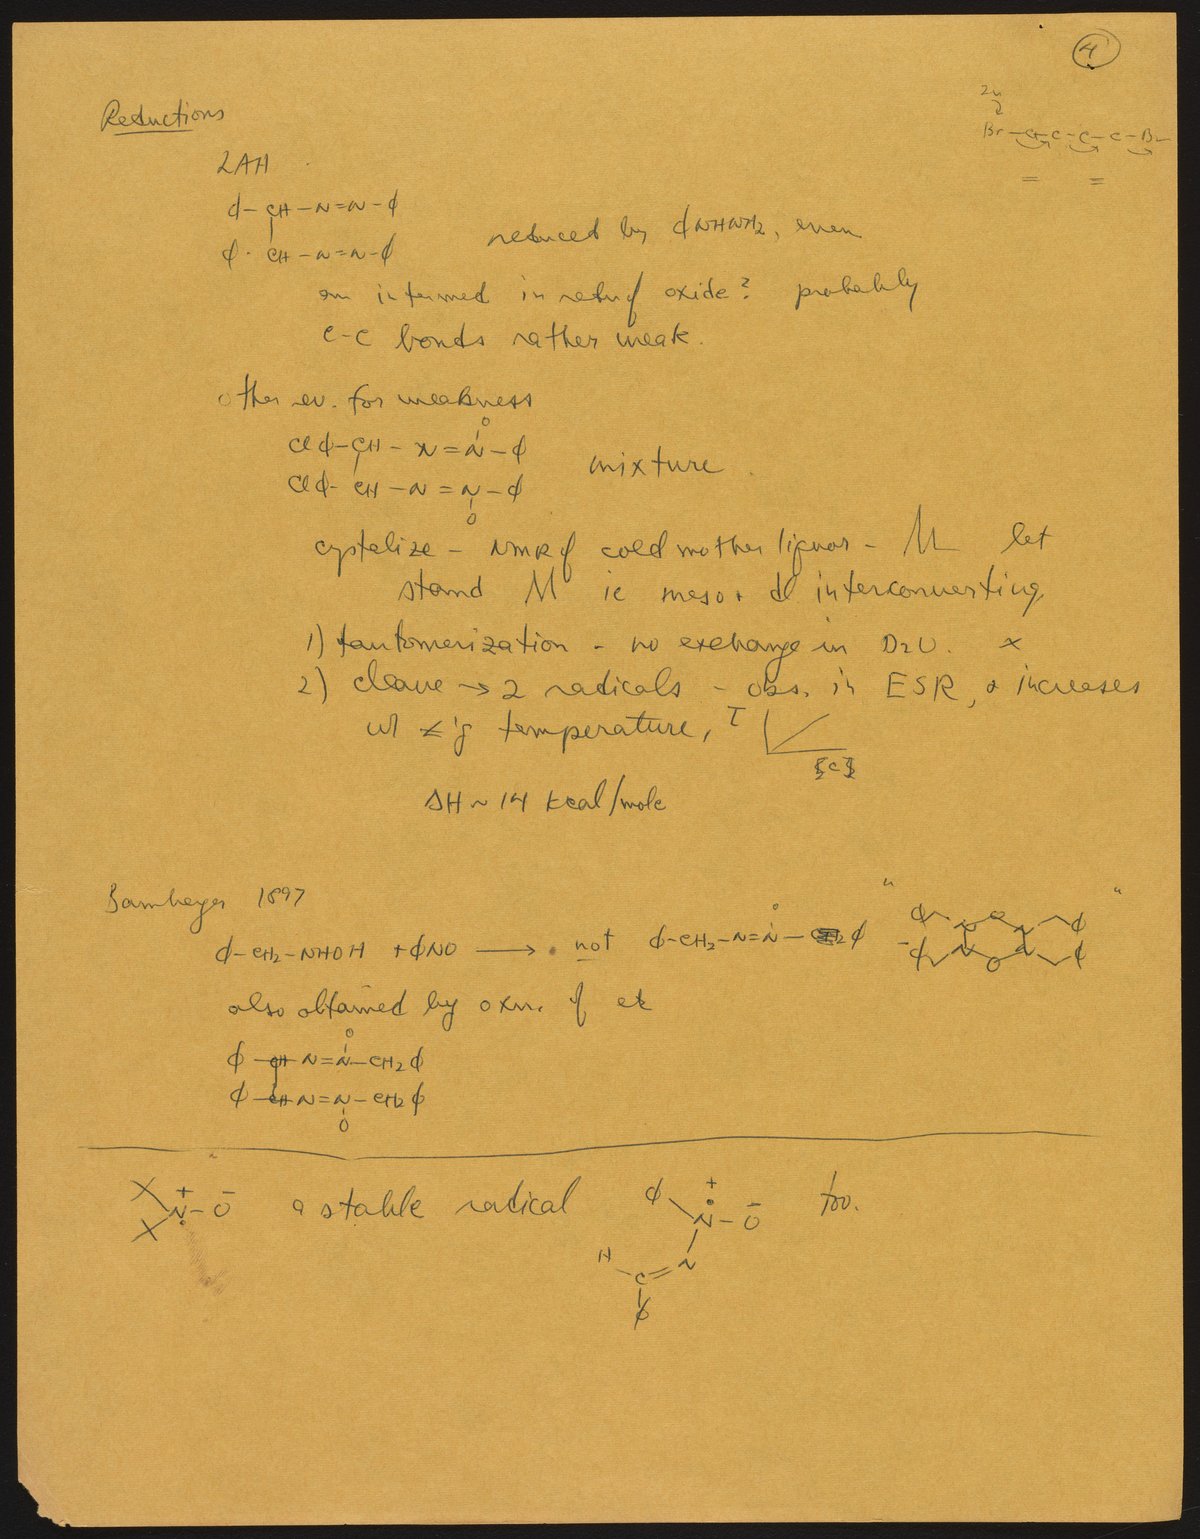 4
Zn
Br-C-C-C-C-Br
= =
Reductions
LAH
ϕ-CH-N=N-ϕ
ϕ-CH-N=N-ϕ
reduced by ϕNHNH2, even
an intermed in redn of oxide? probably
C-C bonds rather weak.
other ev. for weakness
O
Clϕ-CH-N=N-ϕ
Clϕ-CH-N=N-ϕ
O
mixture
cystalize - NMR of cold mother liquor - let
stand ie meso + dl interconverting
1) tautomerization - no exchange in D2O. x
2) cleave → 2 radicals - obs. in ESR, & increases
w/ temperature, I
[c]
ΔH ~ 14 kcal/mole
Bamberger 1897
ϕ-CH2-NHOH + ϕNO → not ϕ-CH2-N=N-ϕ
O
" ϕ N O N ϕ "
ϕ N O N ϕ
also obtained by oxn. of
O
ϕ-CH-N=N-CH2ϕ
ϕ-CH-N=N-CH2ϕ
O
+ -
N-O a stable radical
ϕ + -
N-O too.
H N
C
ϕ